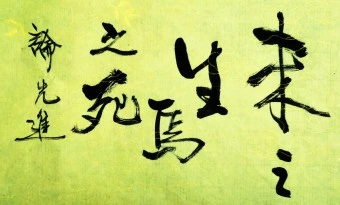 未之
生焉
之死
論先進